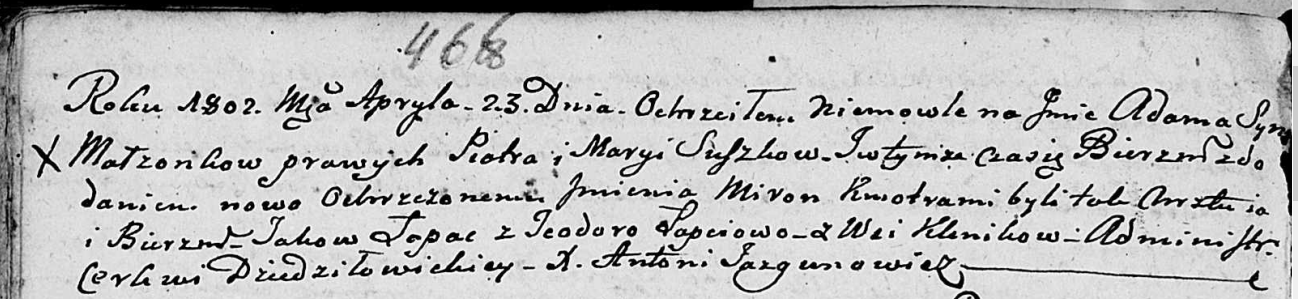 466
Roku 1802. Mją Apryla - 23. Dnia - Ochrzciłem Niemowle na Jmie Adama Syn
X Małzonkow prawych Piotra i Maryi Suszkow - Jwtymze Czasie Bierzm: zdo
daniem nowo Ochrzczonemu Jmienia Miron Kmotrami byli tak Chrztu ia
i Bierzm - Jakow Łapac z Teodoro Łapciowo - z Wsi Klinikow - Administr:
Cerkwi Dziedziłowickiey - X. Antoni Jazgunowicz